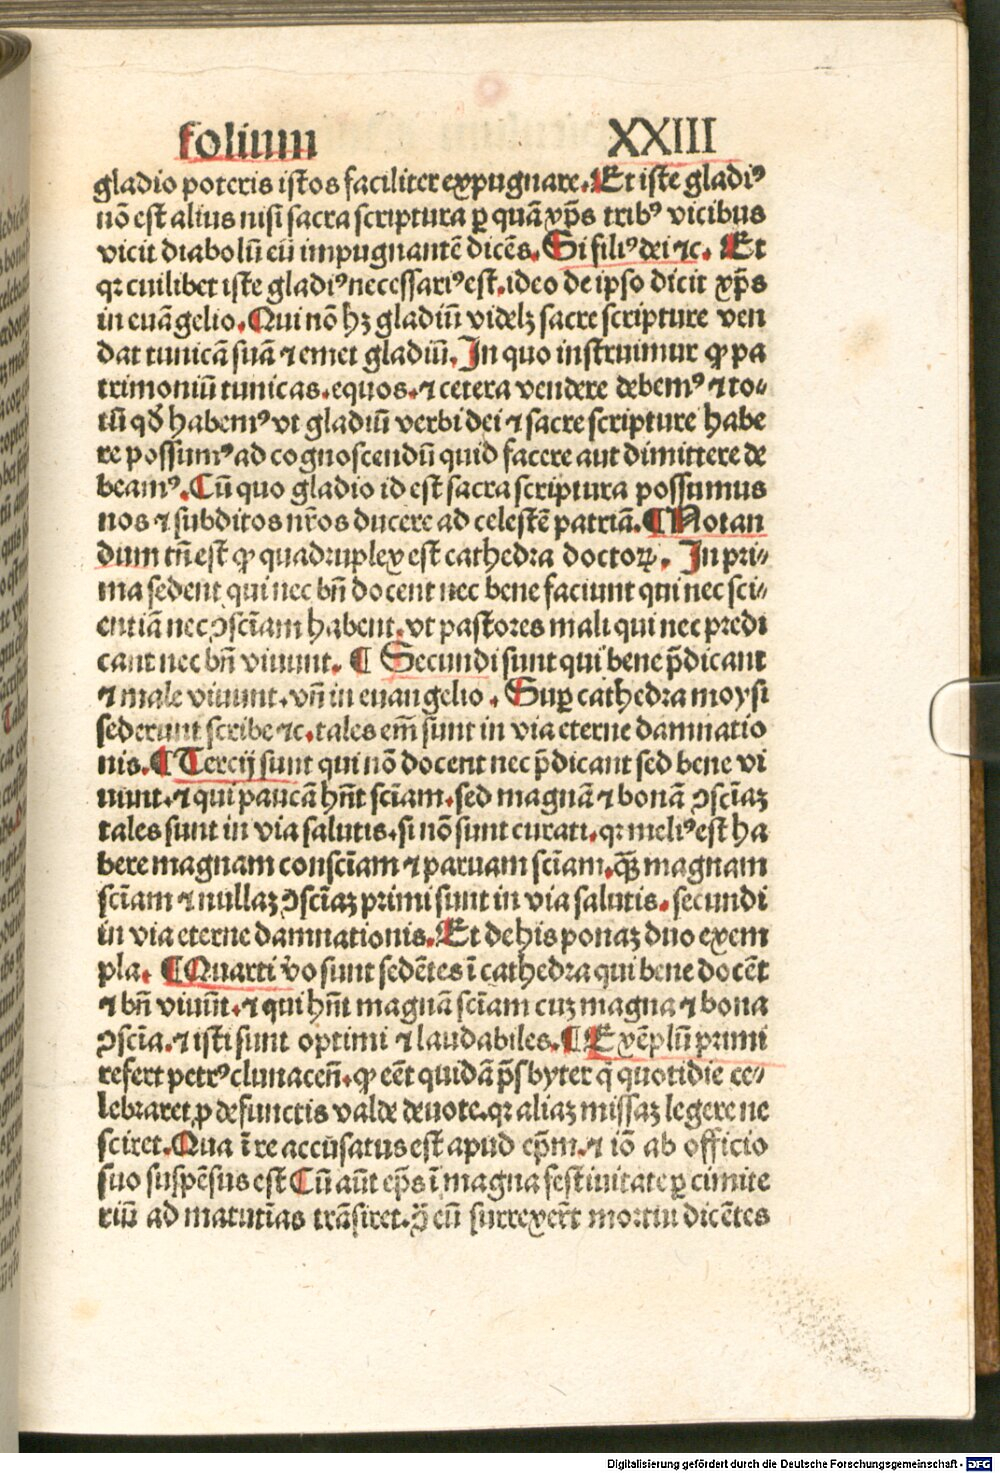 folium XXIII
gladio poteris istos faciliter expugnare. Et iste gladiꝰ
nō est alius nisi sacra scriptura ꝑ quā xp̄s tribꝰ vicibus
vicit diabolū eū impugnantē dicēs. Si filiꝰ dei ⁊c. Et
qꝛ cuilibet iste gladiꝰ necessariꝰ est. ideo de ipso dicit xp̄s
in euāgelio. Qui nō hꝫ gladiū videlꝫ sacre scripture ven
dat tunicā suā ⁊ emet gladiū. In quo instruimur ꝙ pa
trimoniū tunicas. equos. ⁊ cetera vendere debemꝰ ⁊ to⸗
tū qḋ habemꝰ vt gladiū verbi dei ⁊ sacre scripture habe
re possumꝰ ad cognoscendū quid facere aut dimittere de
beamꝰ. Cū quo gladio id est sacra scriptura possumus
nos ⁊ subditos nr̄os ducere ad celestē patriā. ¶ Notan
dum tn̄ est ꝙ quadruplex est cathedra doctoꝝ. In pri⸗
ma sedent qui nec bn̄ docent nec bene faciunt qui nec sci⸗
entiā nec ↄsciam habent. vt pastores mali qui nec predi
cant nec bn̄ viuunt. ¶ Secundi sunt qui bene p̄dicant
⁊ male viuunt. vn̄ in euangelio. Suꝑ cathedra moysi
sederunt scribe ⁊c. tales em̄ sunt in via eterne damnatio
nis. ¶ Tercij sunt qui nō docent nec p̄dicant sed bene vi
uunt. ⁊ qui paucā hn̄t sciam. sed magnā ⁊ bonā ↄsciaꝫ
tales sunt in via salutis. si nō sunt curati. qꝛ meliꝰ est ha
bere magnam consciam ⁊ paruam sciam. qꝫ̄ magnam
sciam ⁊ nullaꝫ ↄsciaꝫ primi sunt in via salutis. secundi
in via eterne damnationis. Et de his ponaꝫ duo exem
pla. ¶ Quarti v̄o sunt sedētes ī cathedra qui bene docēt
⁊ bn̄ viuūt. ⁊ qui hn̄t magnā sciam cuꝫ magna ⁊ bona
ↄscia. ⁊ isti sunt optimi ⁊ laudabiles. ¶ Exēplū primi
refert petrꝰ clunaceñ. ꝙ eēt quidā p̄sbyter q̄ quotidie ce⸗
lebraret ꝓ defunctis valde deuote. qꝛ aliaꝫ missaꝫ legere ne
sciret. Qua ī re accusatus est apud ep̄m. ⁊ iō ab officio
suo suspēsus est Cū aūt ep̄s ī magna festiuitate ꝑ cimite
riū ad matutīas trāsiret. eū surrexer̄t mortui dicētes
Digitalisierung gefördert durch die Deutsche Forschungsgemeinschaft - DFG